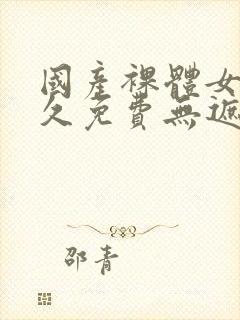 國產裸體女
久免費無遮
邵青